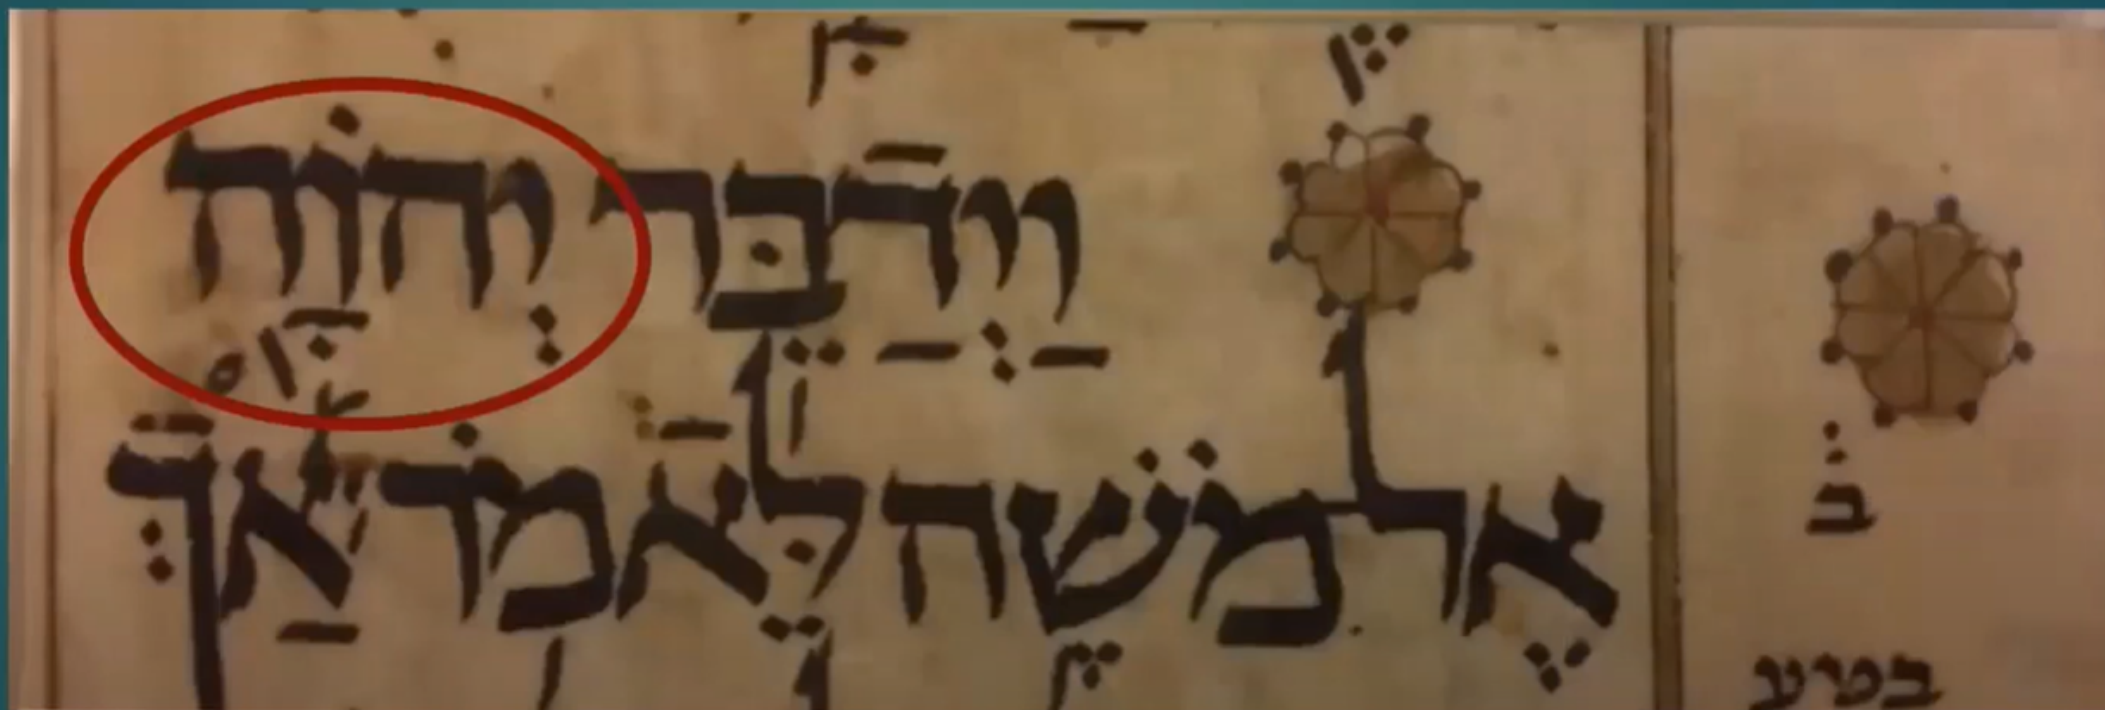 וַיְדַבֵּר יְהֹוָה
אֶל מֹשֶׁה לֵּאמֹר אַךְ
ב